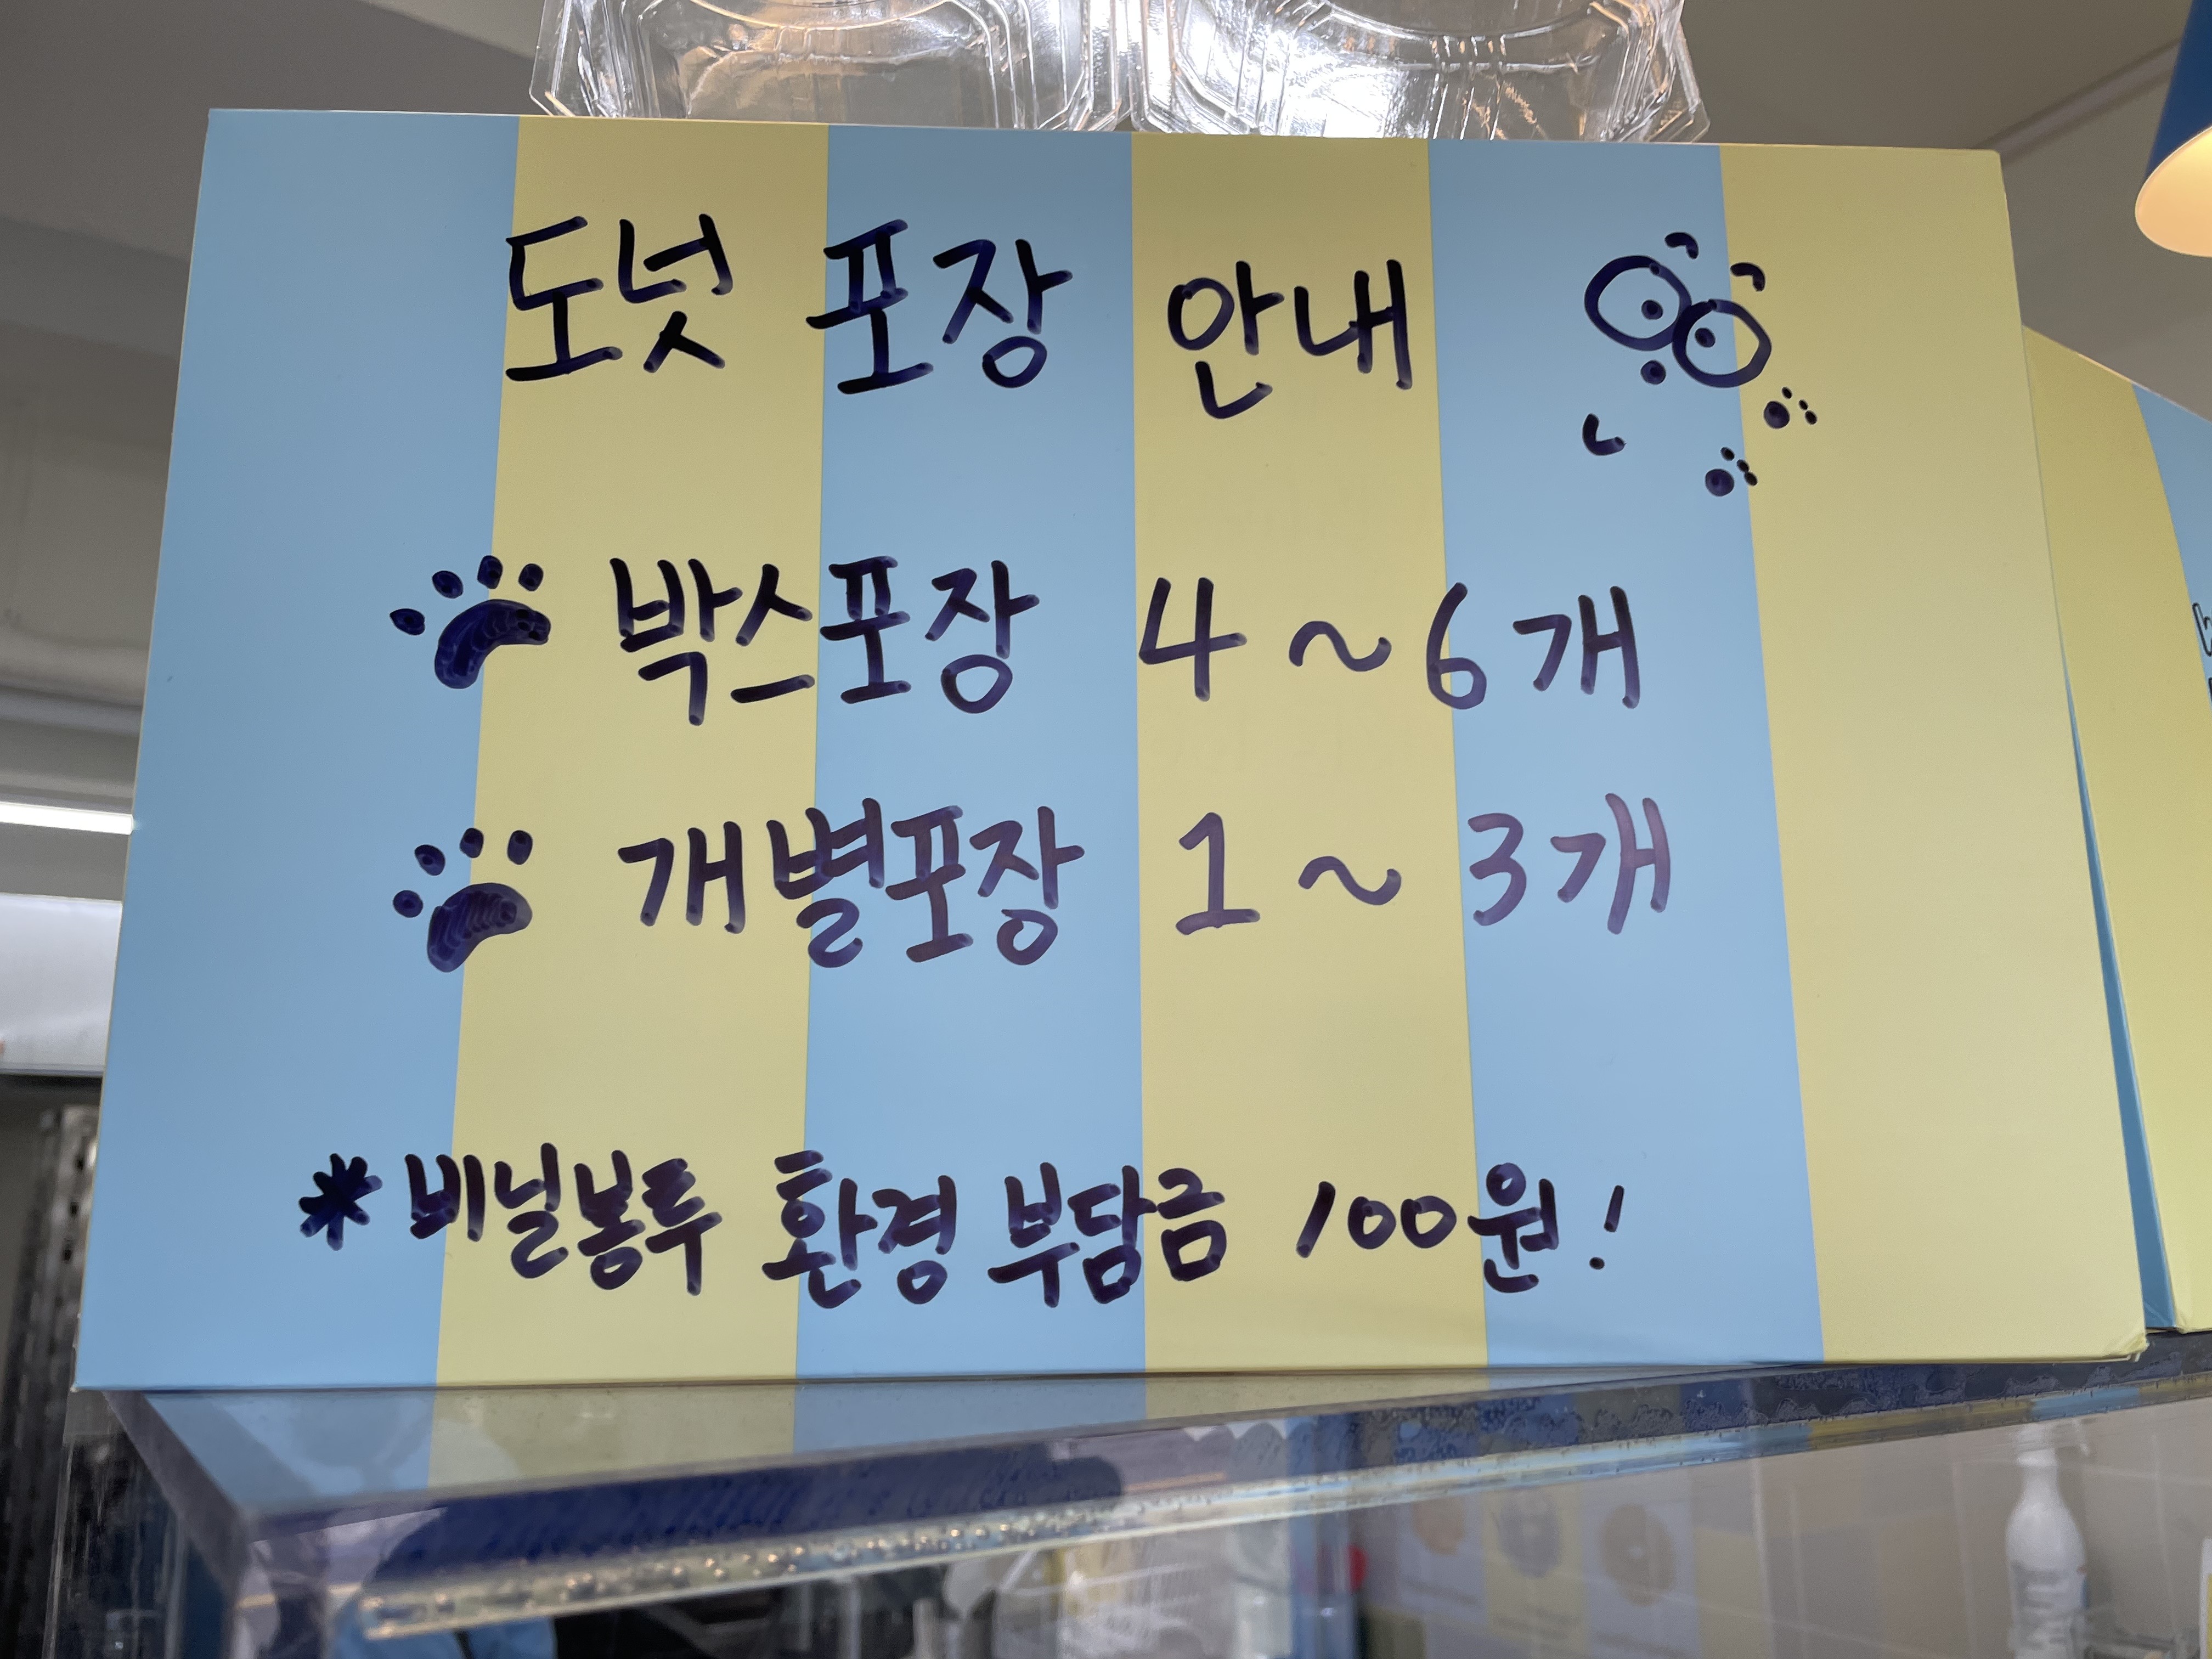 도넛 포장 안내
박스포장 4~6개
개별포장 1~3개
*비닐봉투 환경 부담금 100원!